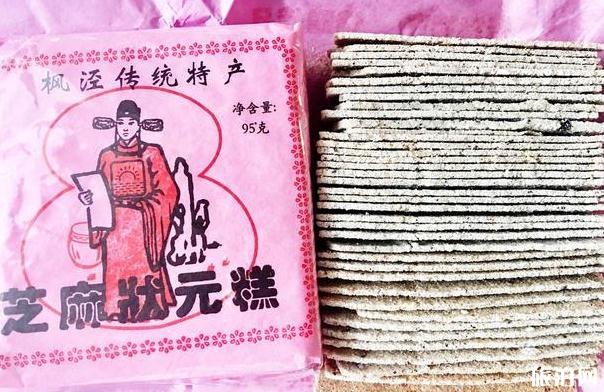 枫泾传统特产
净含量:
95克
芝麻狀元糕
旅泊网